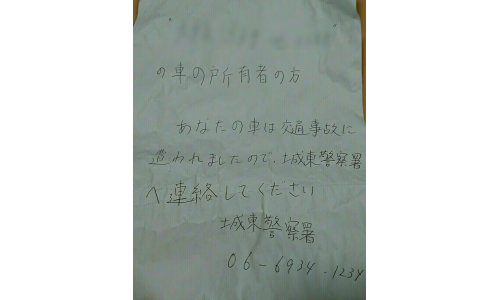 の車の所有者の方
あなたの車は交通事故に
遭われましたので、城東警察署
へ連絡してください
城東警察署
06-6934-1234